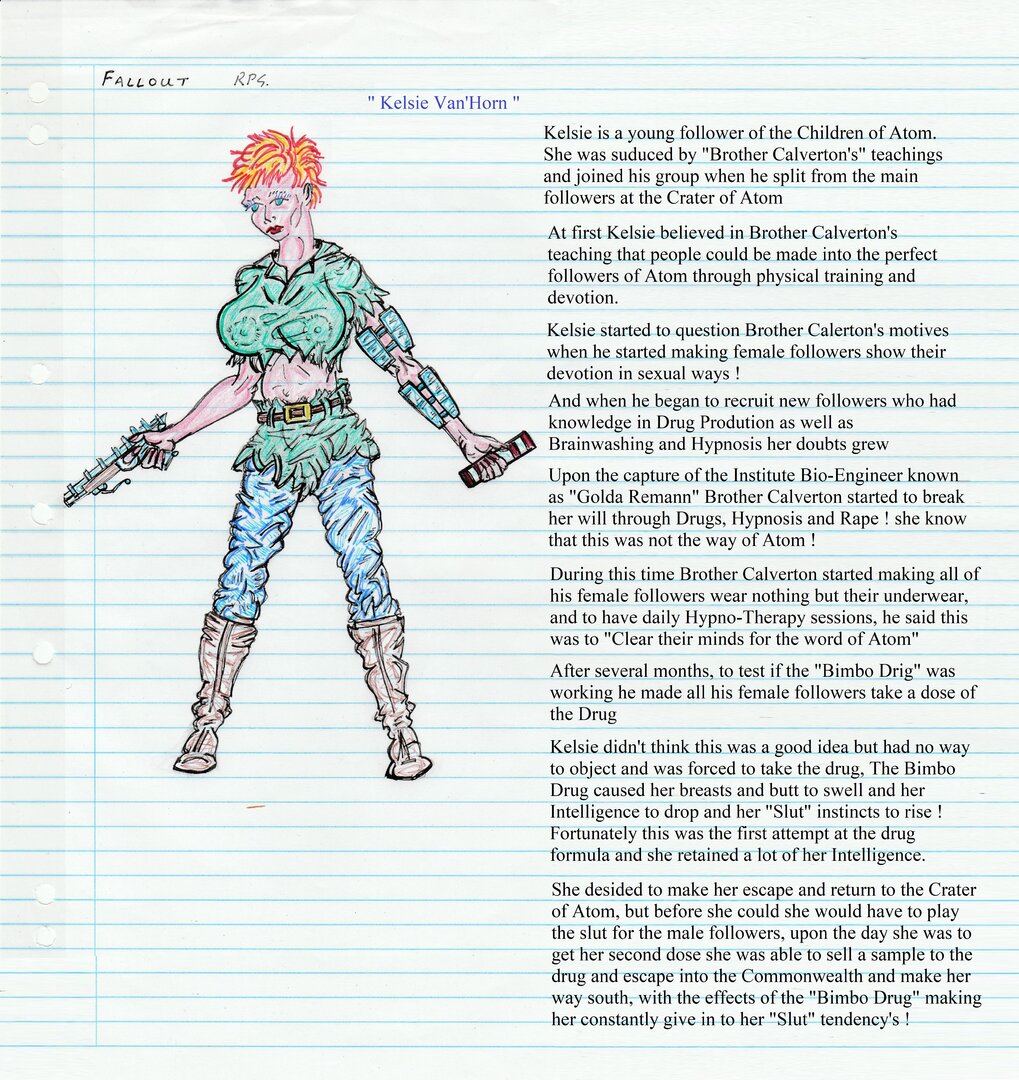 FALLOUT RPG.
" Kelsie Van'Horn "
Kelsie is a young follower of the Children of Atom.
She was suduced by "Brother Calverton's" teachings
and joined his group when he split from the main
followers at the Crater of Atom
At first Kelsie believed in Brother Calverton's
teaching that people could be made into the perfect
followers of Atom through physical training and
devotion.
Kelsie started to question Brother Calerton's motives
when he started making female followers show their
devotion in sexual ways !
And when he began to recruit new followers who had
knowledge in Drug Prodution as well as
Brainwashing and Hypnosis her doubts grew
Upon the capture of the Institute Bio-Engineer known
as "Golda Remann" Brother Calverton started to break
her will through Drugs, Hypnosis and Rape ! she know
that this was not the way of Atom !
During this time Brother Calverton started making all of
his female followers wear nothing but their underwear,
and to have daily Hypno-Therapy sessions, he said this
was to "Clear their minds for the word of Atom"
After several months, to test if the "Bimbo Drig" was
working he made all his female followers take a dose of
the Drug
Kelsie didn't think this was a good idea but had no way
to object and was forced to take the drug, The Bimbo
Drug caused her breasts and butt to swell and her
Intelligence to drop and her "Slut" instincts to rise !
Fortunately this was the first attempt at the drug
formula and she retained a lot of her Intelligence.
She desided to make her escape and return to the Crater
of Atom, but before she could she would have to play
the slut for the male followers, upon the day she was to
get her second dose she was able to sell a sample to the
drug and escape into the Commonwealth and make her
way south, with the effects of the "Bimbo Drug" making
her constantly give in to her "Slut" tendency's !